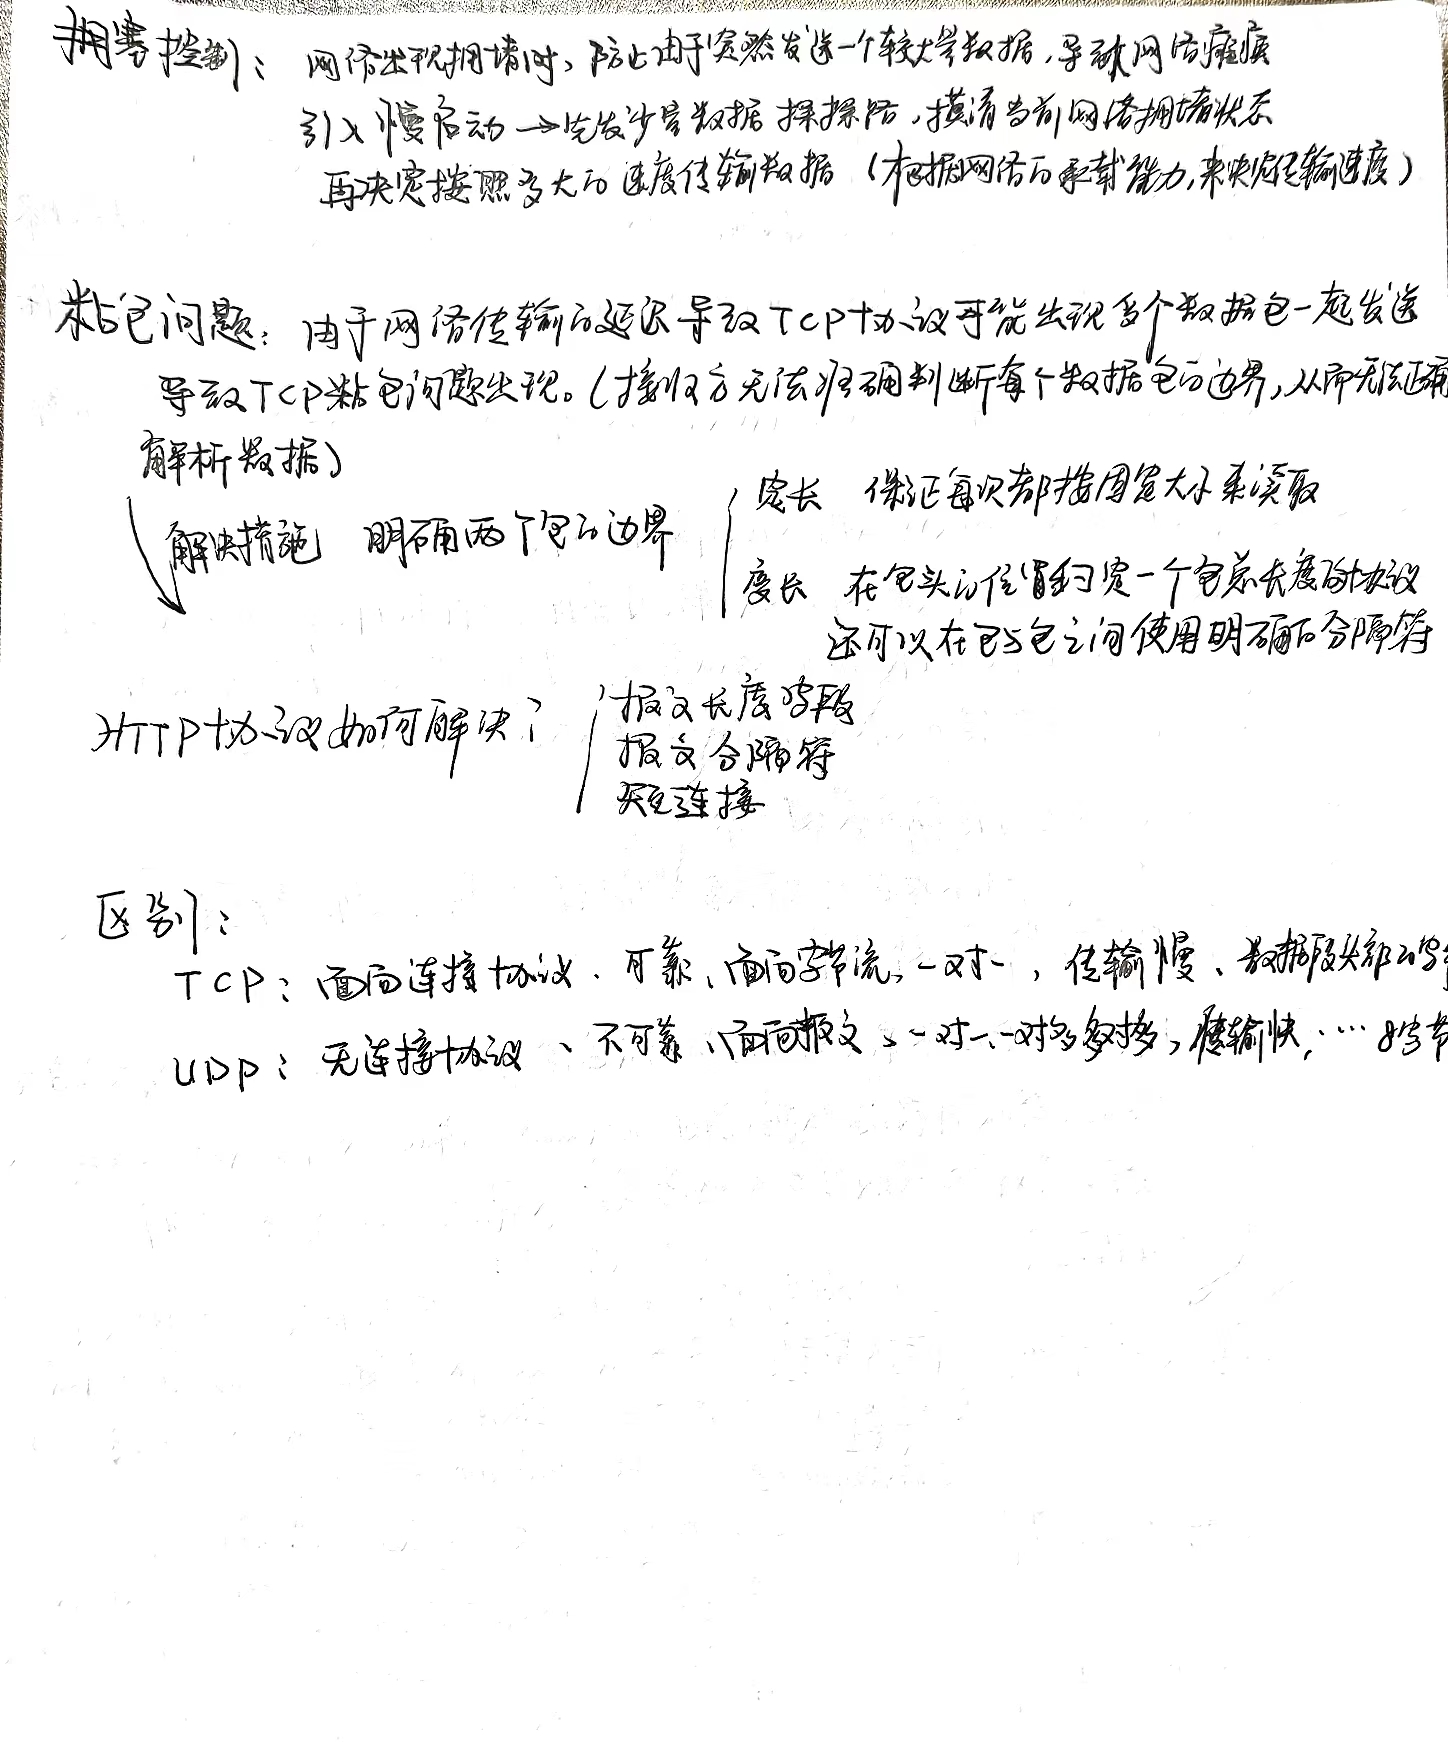 拥塞控制: 网络出现拥堵时、防止由于突然发送一个较大量数据,导致网络瘫痪
引入慢启动→先发少量数据探探路,摸清当前网络拥堵状态
再决定按照多大的速度传输数据(根据网络的承载能力,来决定传输速度)
粘包问题:由于网络传输的延迟导致TCP协议可能出现多个数据包一起发送
导致TCP粘包问题出现。(接收方无法准确判断每个数据包的边界,从而无法正确
解析数据)
解决措施 明确两个包的边界
定长 保证每次都按固定大小来读取
变长 在包头的位置约定一个包总长度的协议
还可以在包与包之间使用明确的分隔符
HTTP协议如何解决?
报文长度字段
报文分隔符
短连接
区别:
TCP:面向连接协议、可靠、面向字节流、一对一,传输慢、数据段头部20字
UDP:无连接协议、不可靠、面向报文、一对一、一对多多对多,传输快,…8字节